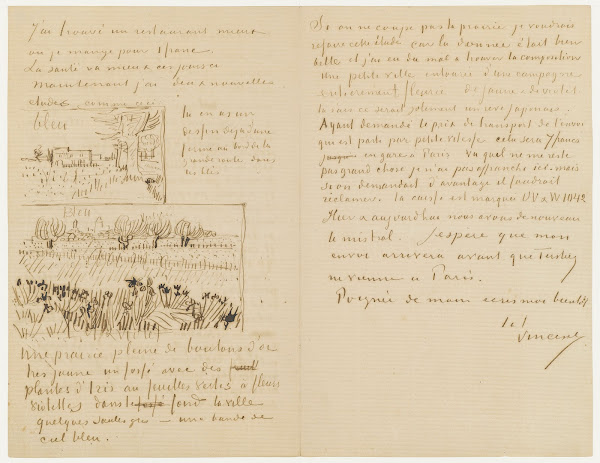 J'ai trouvé un restaurant mieux
où je mange pour 1 franc.
La santé va mieux ces jours ci
Maintenant j'ai deux nouvelles
etudes comme ceci
bleu
tu en as un
dessin déja d'une
ferme au bord de la
grande route dans
les blés
Bleu
Une prairie pleine de boutons d'or
tres jaune un fossé avec des
plantes d'Iris aux feuilles vertes à fleurs
violettes dans le fossé fond la ville
quelques saules gris – une bande de
ciel bleu.
Si on ne coupe pas la prairie je voudrais
refaire cette étude car la donnée était bien
belle et j'ai eu du mal a trouver la composition
Une petite ville entourée d'une campagne
entièrement fleurie de jaune & de violet
ce serait joliment un reve japonais.
Ayant demandé le prix de transport de l'envoi
qui est parti par petite vitesse cela sera 7 francs
jusque en gare à Paris Vu qu'il ne me reste
pas grand chose je n'ai pas affranchi ici. mais
si on demandait d'avantage il faudrait
réclamer. la caisse est marquée UV & W 1042
Hier & aujourd'hui nous avons de nouveau
le mistral. J'espere que mon
envoi arrivera avant que Tersteeg
ne vienne a Paris.
Poignée de main ecris moi bientôt
t. à t.
Vincent